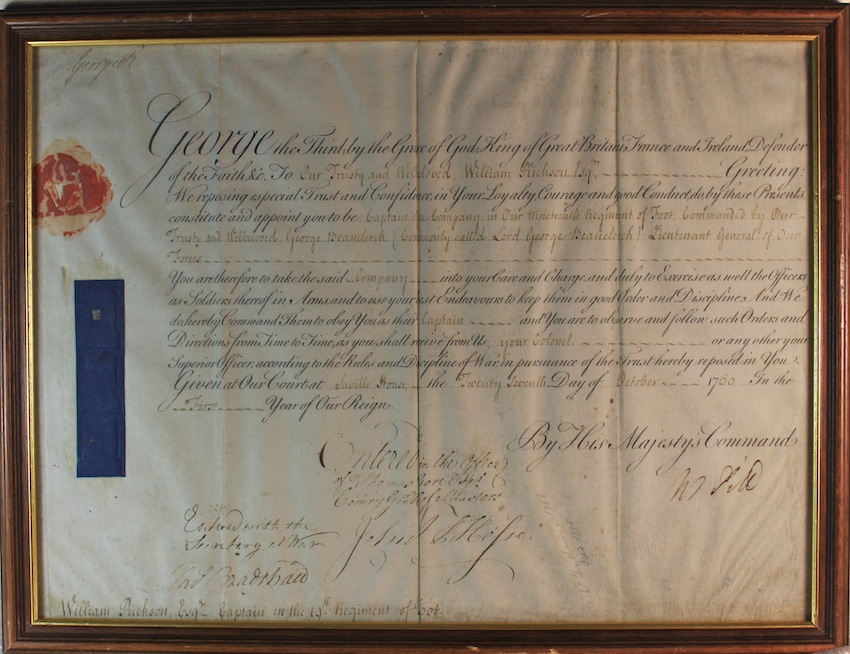 George R.
George the Third, by the Grace of God, King of Great Britain, France and Ireland, Defender
of the Faith, &c. To Our Trusty and Welbeloved William Rickson Esqr. Greeting:
We reposing especial Trust and Confidence in Your Loyalty, Courage and good Conduct, do, by these Presents,
constitute and appoint you to be Captain of a Company in Our Nineteenth Regiment of Foot, Commanded by Our
Trusty and Welbeloved George Beauclerck (Commonly called Lord George Beauclerck) Lieutenant General of Our
Forces
You are therefore to take the said Company into your Care and Charge, and duly to Exercise as well the Officers
as Soldiers thereof in Arms, and to use your best Endeavours to keep them in good Order and Discipline; And We
do hereby Command Them to obey You as their Captain and You are to observe and follow such Orders and
Directions from Time to Time, as you shall receive from Us, your Colonel or any other your
Superior Officer, according to the Rules and Discipline of War, in pursuance of the Trust hereby reposed in You.
Given at Our Court at Saville House the Twenty Seventh Day of October 1760 In the
First Year of Our Reign.
By His Majesty's Command
W Pitt
Entered in the Office
of Thomas Gore Esqr
Comry Genl of Musters
John
Entered with the
Secretary at War
Tho Bradshaw
William Rickson, Esqr. Captain in the 19th Regiment of Foot.